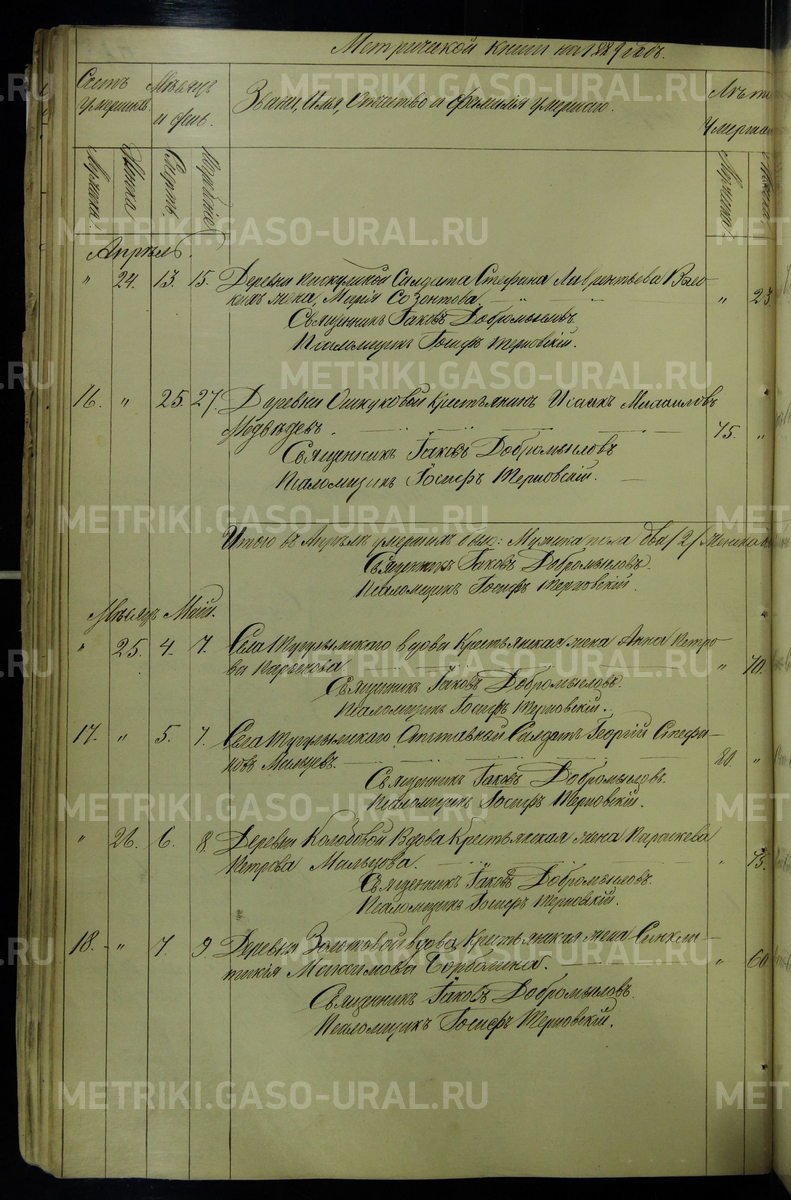 Метрической книги на 1889 годъ.
Счетъ умершихъ. Мѣсяцъ и день. Званіе, Имя, Отчество и фамилія умершаго. Лѣт
Умерша
Мужеска. Женска Смерть. Погребенія Мужеска Женска
Апрѣль.
" 24. 13. 15. Деревни Солдата Стефана Лаврентьева
жена, Марія Созонтова " 23
Священникъ Іаковъ Добромысловъ
Псаломщикъ Іосифъ Терновскій.
16. " 25. 27. Деревни Ошкуковой крестьянинъ Исаакъ Михаиловъ
Медвѣдевъ 75. "
Священникъ Іаковъ Добромысловъ
Псаломщикъ Іосифъ Терновскій.
Итого въ Апрѣлѣ умершихъ было: Мужеска пола два /2/ Женска
Священникъ Іаковъ Добромысловъ.
Псаломщикъ Іосифъ Терновскій.
Мѣсяцъ Май.
" 25. 4. 7. Села Тугулымскаго вдова Крестьянская жена Анна Петро-
ва " 70.
Священникъ Іаковъ Добромысловъ.
Псаломщикъ Іосифъ Терновскій.
17. " 5. 7. Села Тугулымскаго Отставный Солдатъ Георгій Стефа-
новъ Мальцевъ 80. "
Священникъ Іаковъ Добромысловъ.
Псаломщикъ Іосифъ Терновскій.
" 26. 6. 8. Деревни Колобовой Вдова Крестьянская жена Параскева
Петрова Мальцова. " 75.
Священникъ Іаковъ Добромысловъ.
Псаломщикъ Іосифъ Терновскій.
18. " 7. 9 Деревни Вдова, Крестьянская жена Синкли-
тикія Максимова " 60
Священникъ Іаковъ Добромысловъ.
Псаломщикъ Іосифъ Терновскій.
METRIKI.GASO-URAL.RU